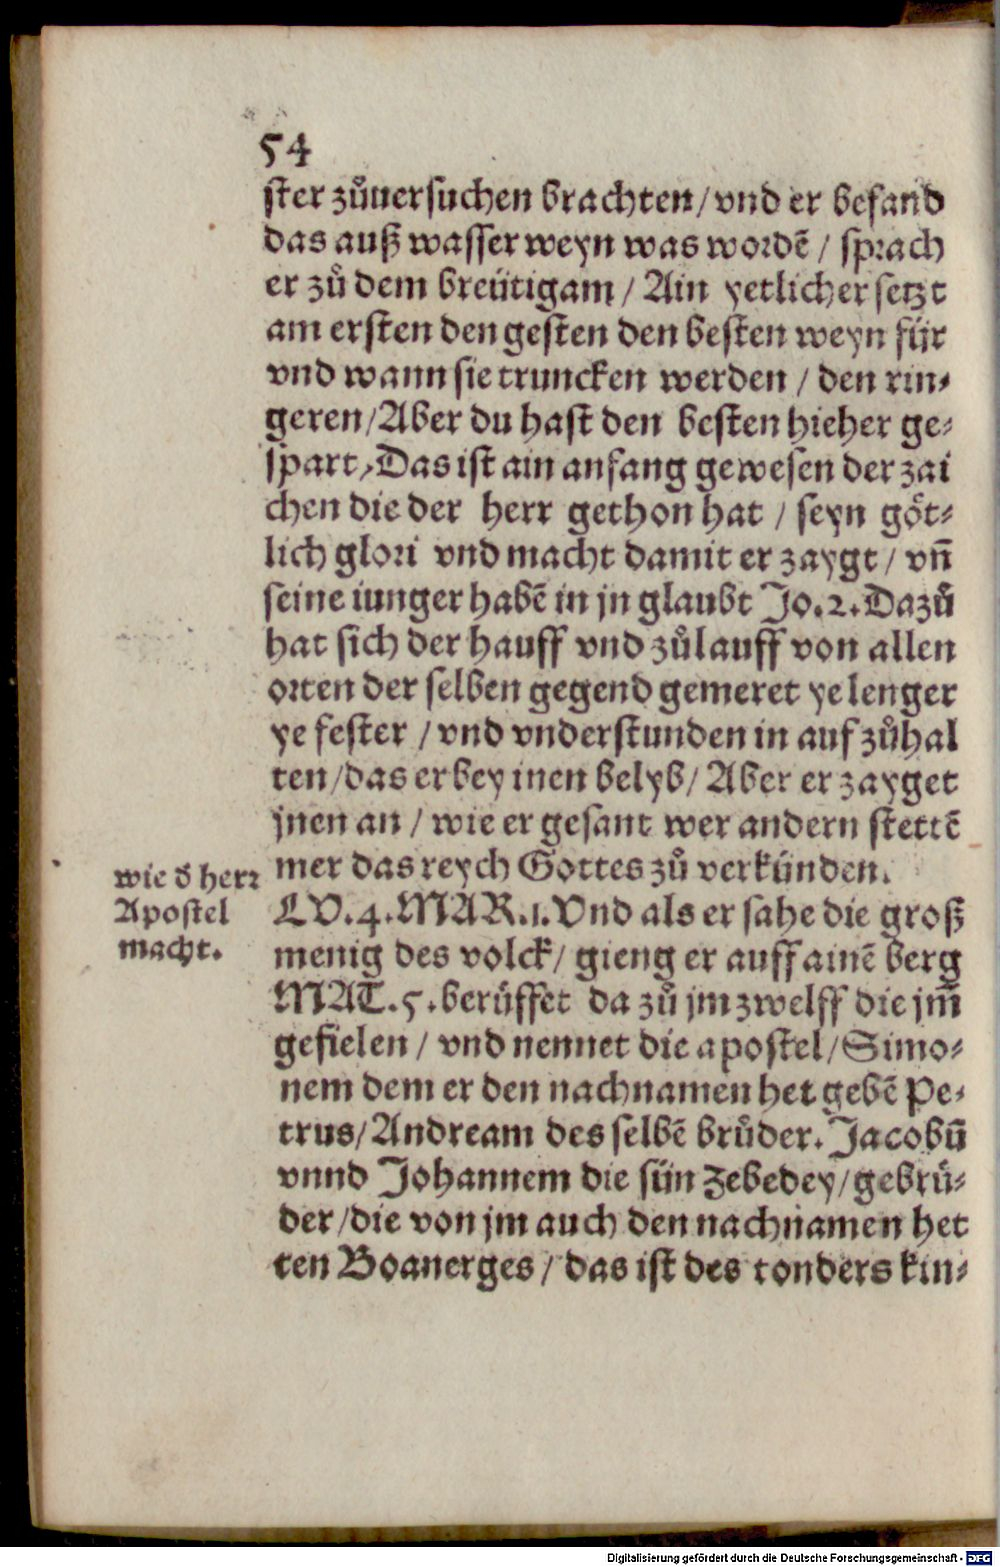 54
ster zůuersuchen brachten/vnd er befand
das auß wasser weyn was wordē/ sprach
er zů dem breütigam/ Ain yetlicher setzt
am ersten den gesten den besten weyn für
vnd wann sie truncken werden/ den rin⸗
geren/Aber du hast den besten hieher ge⸗
spart/Das ist ain anfang gewesen der zai
chen die der herr gethon hat/ seyn göt⸗
lich glori vnd macht damit er zaygt/ vn̄
seine iunger habē in jn glaubt Jo.2.Dazů
hat sich der hauff vnd zůlauff von allen
orten der selben gegend gemeret ye lenger
ye fester/vnd vnderstunden in auf zůhal
ten/das er bey inen belyb/Aber er zayget
jnen an/ wie er gesant wer andern stettē
mer das reych Gottes zů verkünden.
wie d̄ herr
Apostel
macht.
LV.4.MAR.1.Vnd als er sahe die groß
menig des volck/ gieng er auff ainē berg
MAT.5.berüffet da zů jm zwelff die jm̄
gefielen/ vnd nennet die apostel/Simo⸗
nem dem er den nachnamen het gebē Pe⸗
trus/Andream des selbē brůder.Jacobū
vnnd Johannem die sün Zebedey/gebrü⸗
der/die von jm auch den nachnamen het
ten Boanerges/das ist des tonders kin⸗
Digitalisierung gefördert durch die Deutsche Forschungsgemeinschaft - DFG